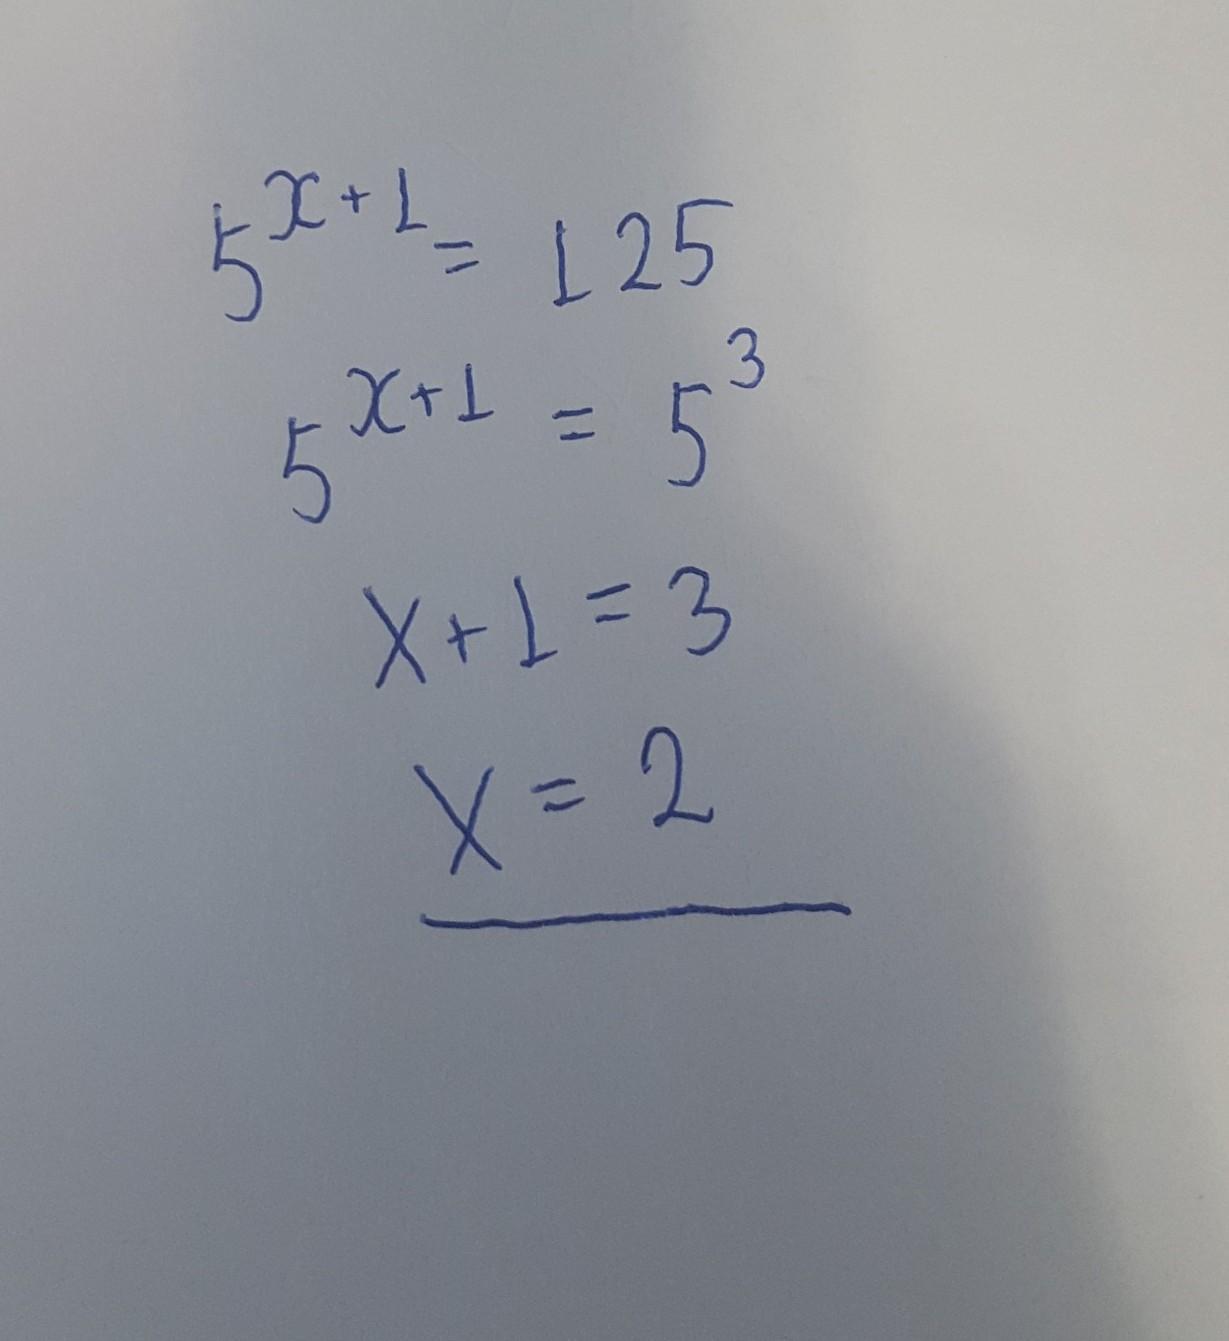 5^{x+1} = 125
5^{x+1} = 5^3
x+1=3
x=2